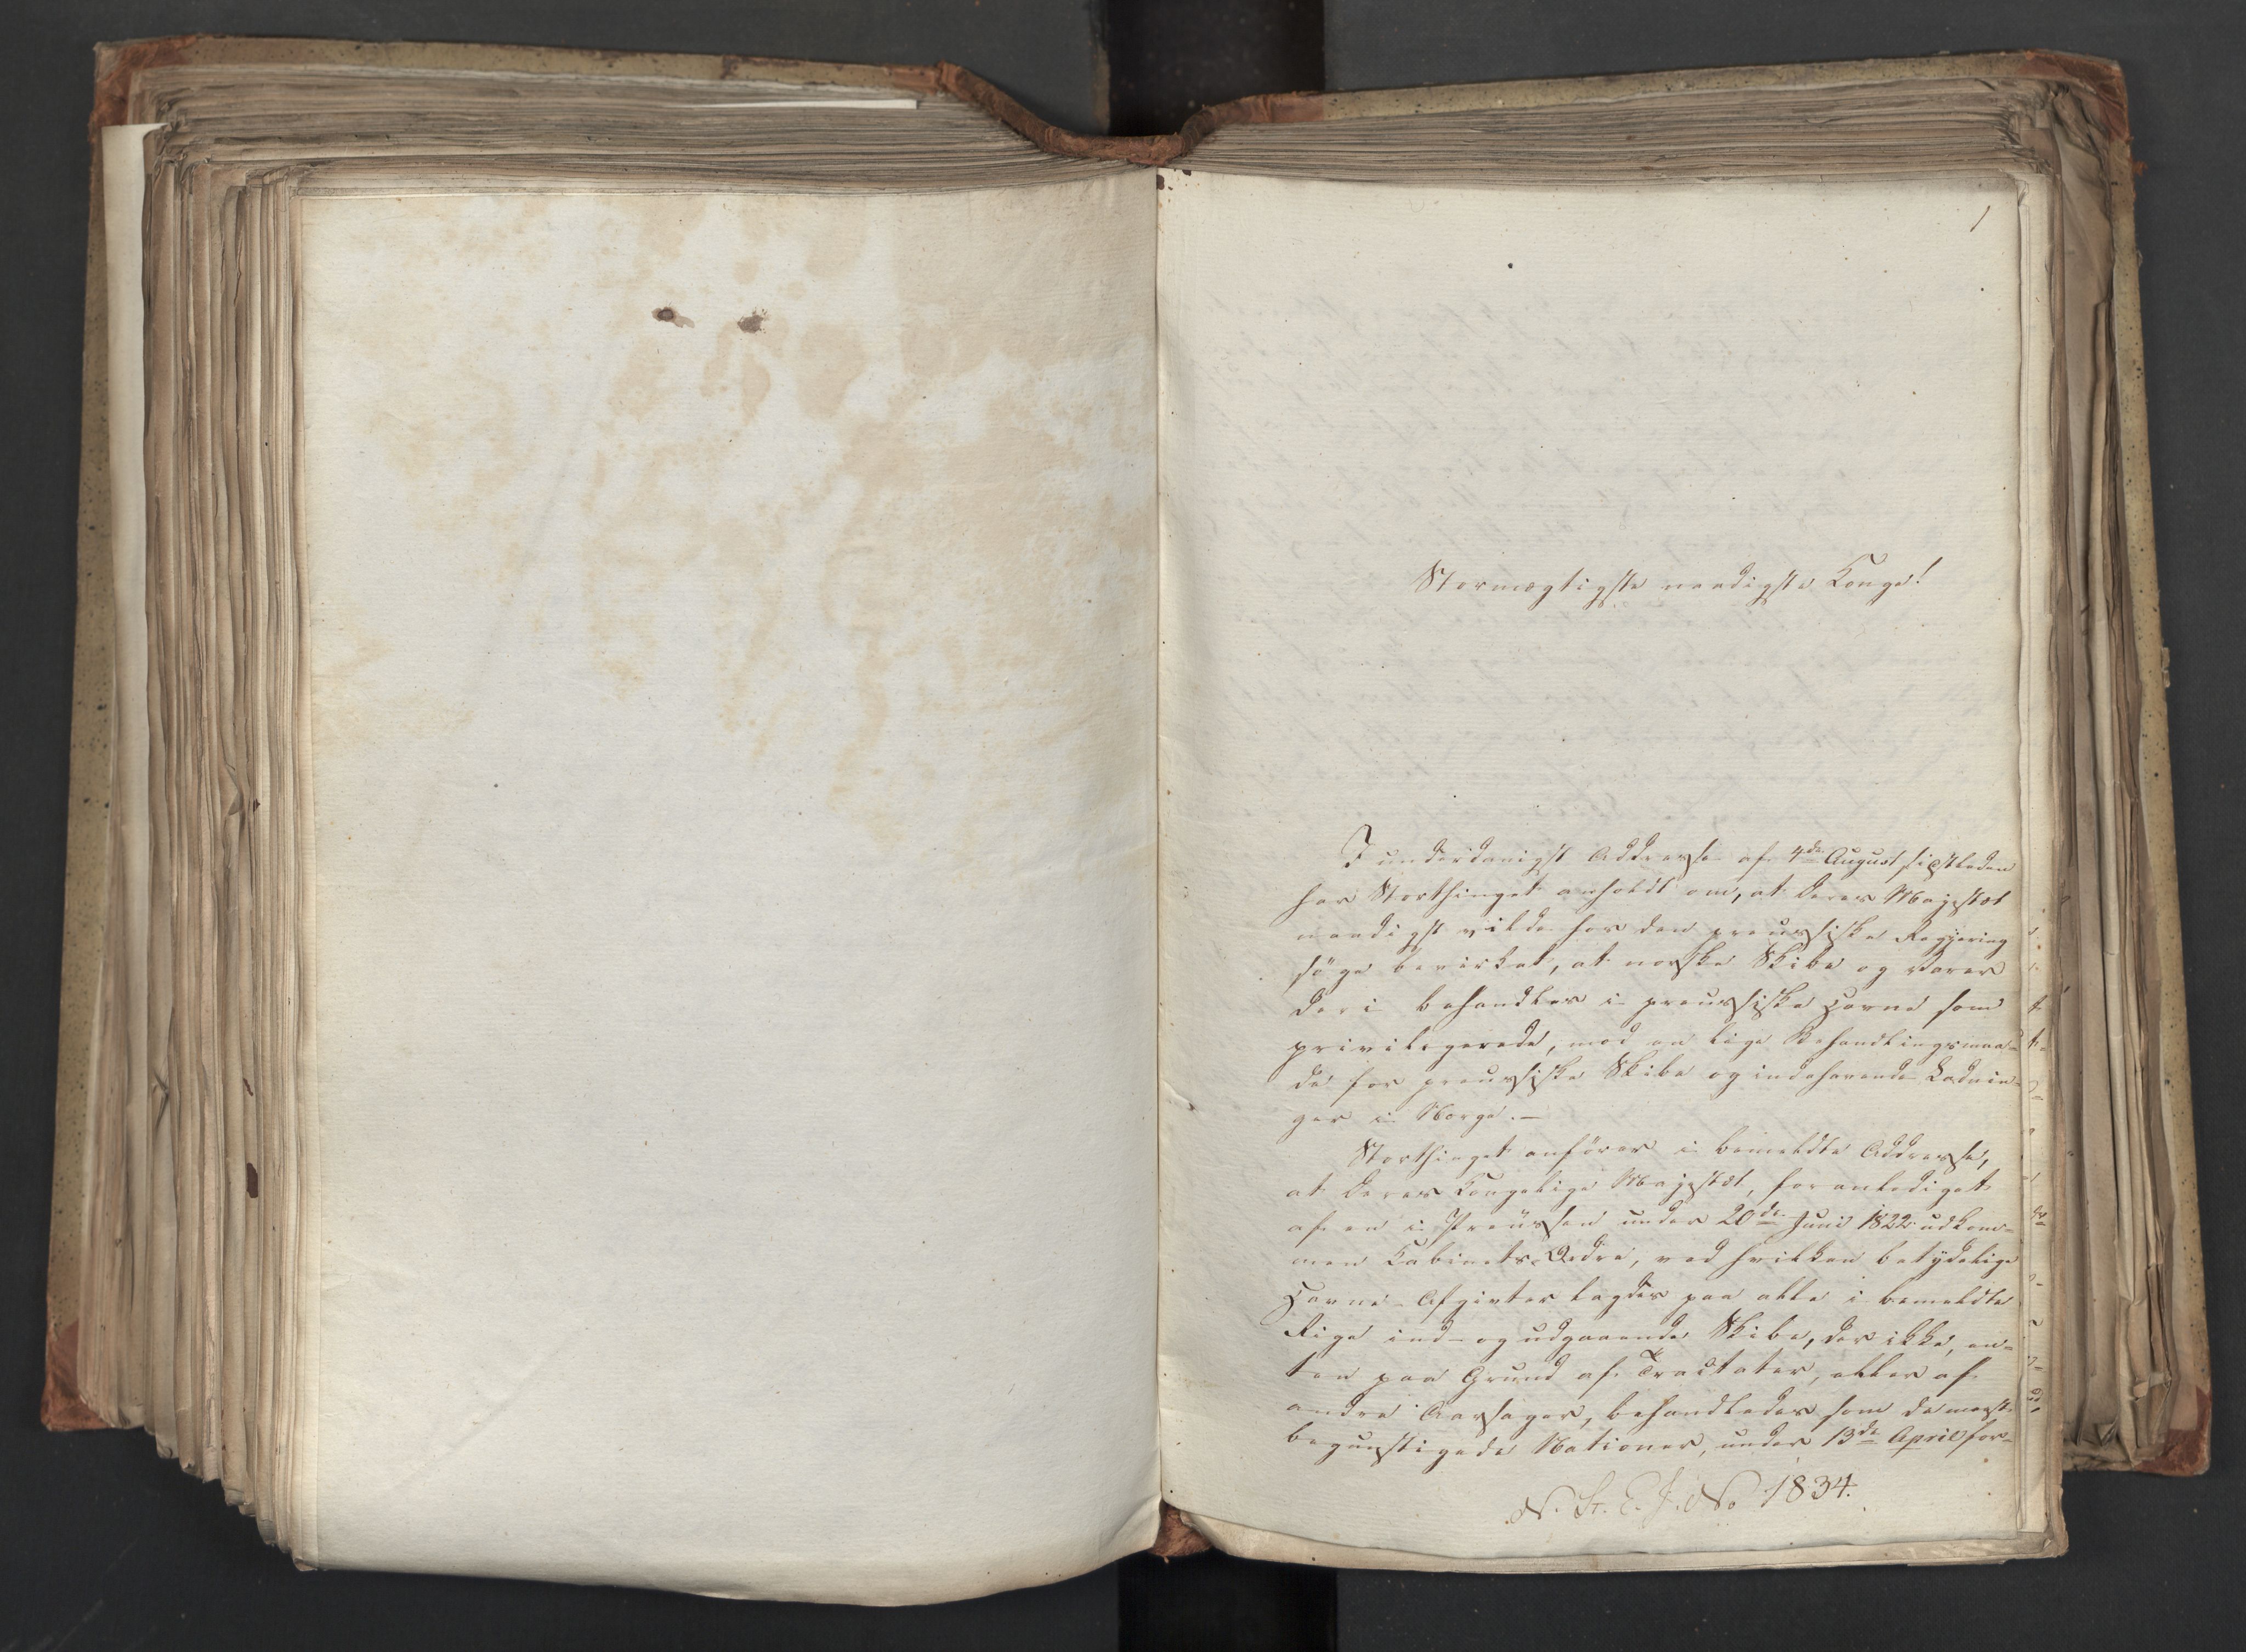 1
Stormægtigste naadigste Konge!
I underdanigst Addresse af 4de August sidstleden
har Storthinget anholdt om, at Deres Majestæt
naadigst vilde hos den preussiske Regjering
søge bevirket, at norske Skibe og Varer
deri behandles i preussiske Havne som
privilegerede, mod en lige Behandlingsmaa-
de for preussiske Skibe og indehavende Ladnin-
ger i Norge.—
Storthinget anfører i bemeldte Addresse,
at Deres Kongelige Majestæt, foranlediget
af en i Preussen under 20de Juni 1822 udkom-
men Cabinets-Ordre, ved hvilken betydelige
Havne-Afgivter lagdes paa alle i bemeldte
Rige ind- og udgaaende Skibe, der ikke, en-
ten paa Grund af Tractater, eller af
andre Aarsager, behandledes som de meest
begunstigede Nationer, under 13de April for-
N. St. E. J. No 1834.